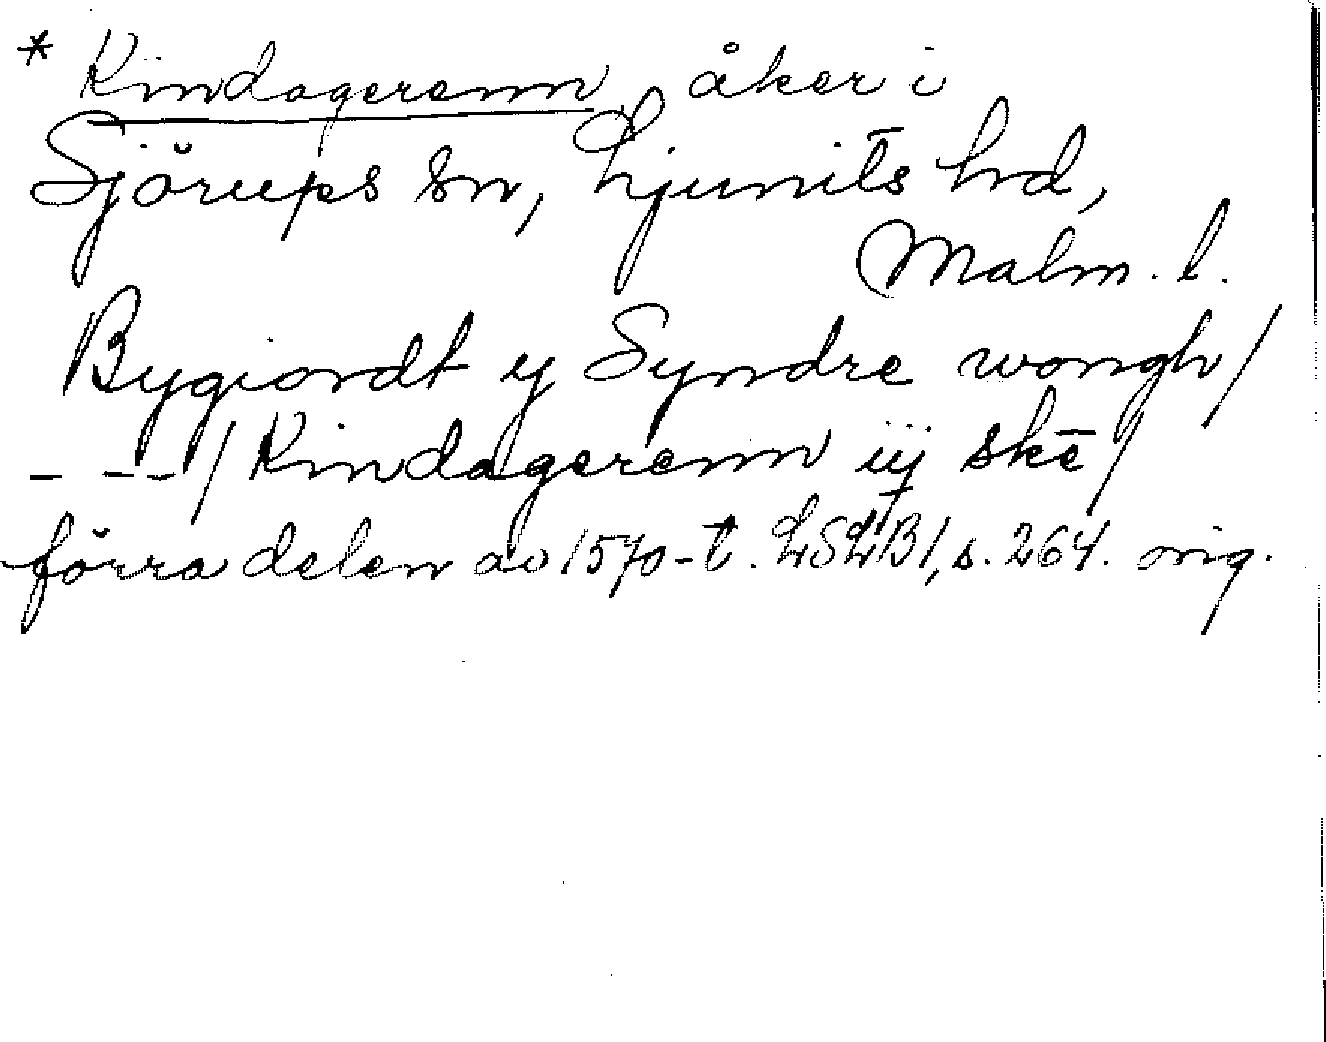 * Kindagerenn, åker i
Sjörups sn, Ljunits hd,
Malm. l.
Bygiordt ij Syndre wongh /
- -- / Kindagerenn iij skē /
förra delen av 1570-t. LSLB 1, s. 264. orig.